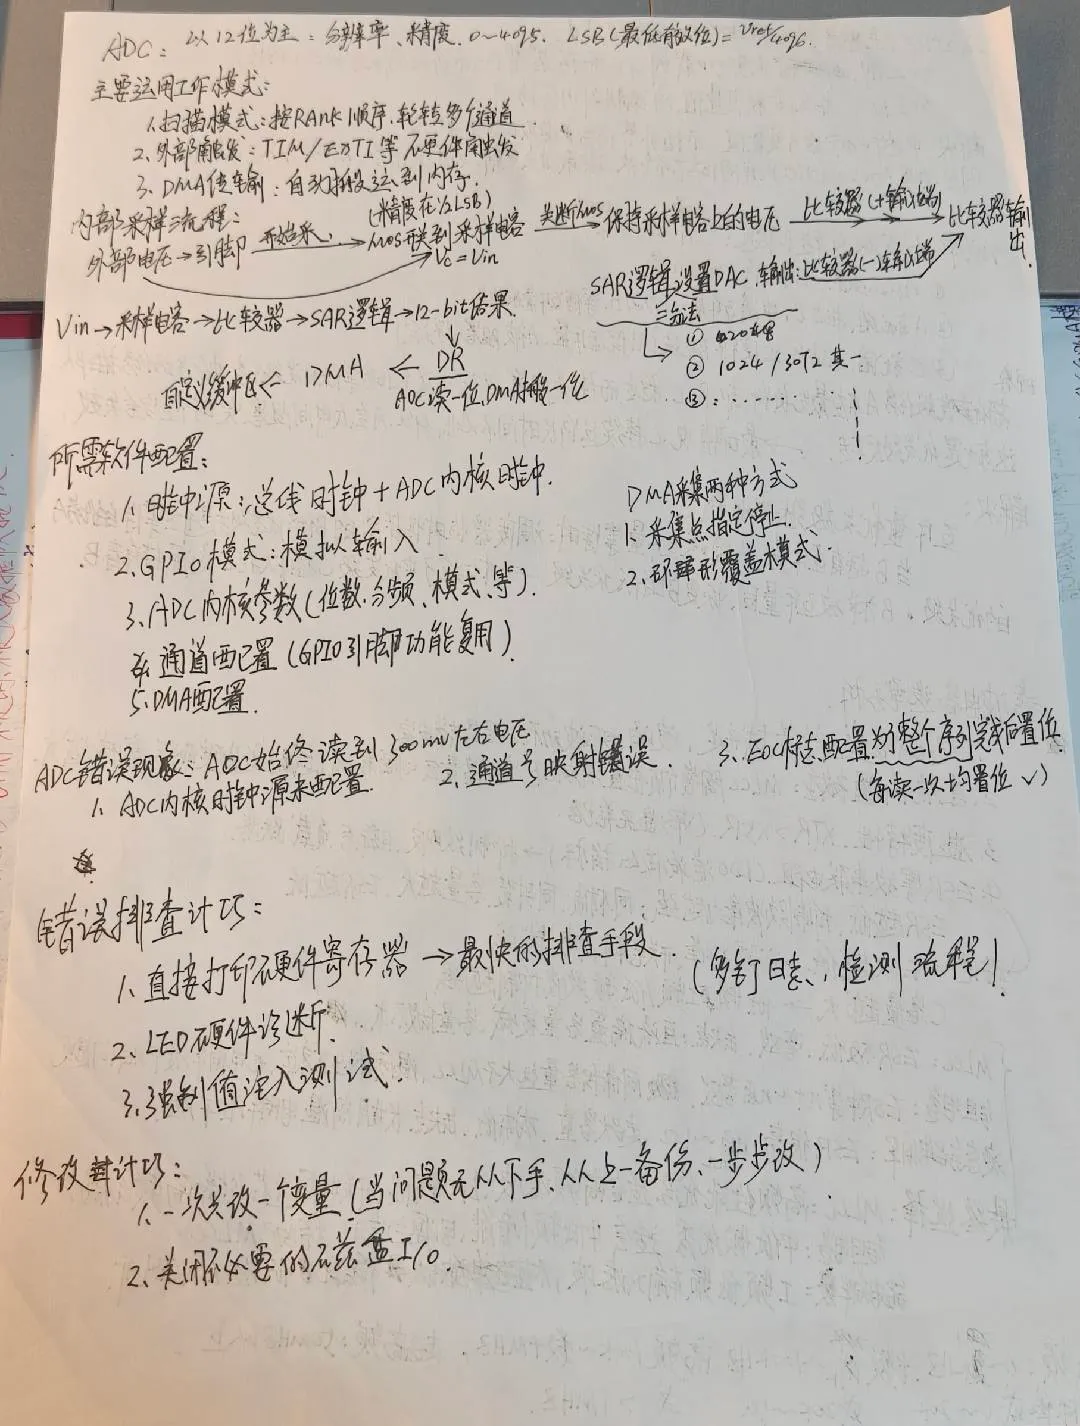 ADC: 以12位为主: 分辨率、精度. 0~4095. LSB(最低有效位)=Vref/4096.
主要运用工作模式:
1. 扫描模式: 按RANK顺序, 轮转多个通道
2. 外部触发: TIM/EXTI等硬件触发
3. DMA传输: 自动搬运到内存.
内部采样流程: (精度在1/2LSB)
外部电压→引脚 开始采→ MOS开关到采样电容 断MOS→保持采样电容上的电压 比较器(+输入端)→比较器输出.
Vc=Vin
SAR逻辑设置DAC输出: 比较器(-)输入端
Vin→采样电容→比较器→SAR逻辑→12-bit结果.
二分法
①
② 1024/3072其一
③: ......
自定义缓冲区← DMA ← DR
ADC读一位, DMA搬一位
所需软件配置:
1. 时钟源: 总线时钟+ADC内核时钟.
2. GPIO模式: 模拟输入.
3. ADC内核参数(位数、分频、模式、等).
4. 通道配置(GPIO引脚功能复用).
5. DMA配置.
DMA采集两种方式
1. 采集点指定停止.
2. 环形覆盖模式.
ADC错误现象: ADC始终读到300mv左右电压
1. ADC内核时钟源未配置.
2. 通道号映射错误.
3. EOC标志配置为了整个序列完成后置位
(每读一次均置位 ✓)
错误排查计巧:
1. 直接打印硬件寄存器→最快的排查手段.
(多打日志, 检测流程)
2. LED硬件诊断.
3. 强制值注入测试.
修改计巧:
1. 一次只改一个变量(当问题无从下手、从上一备份、一步步改)
2. 关闭不必要的 I/O.